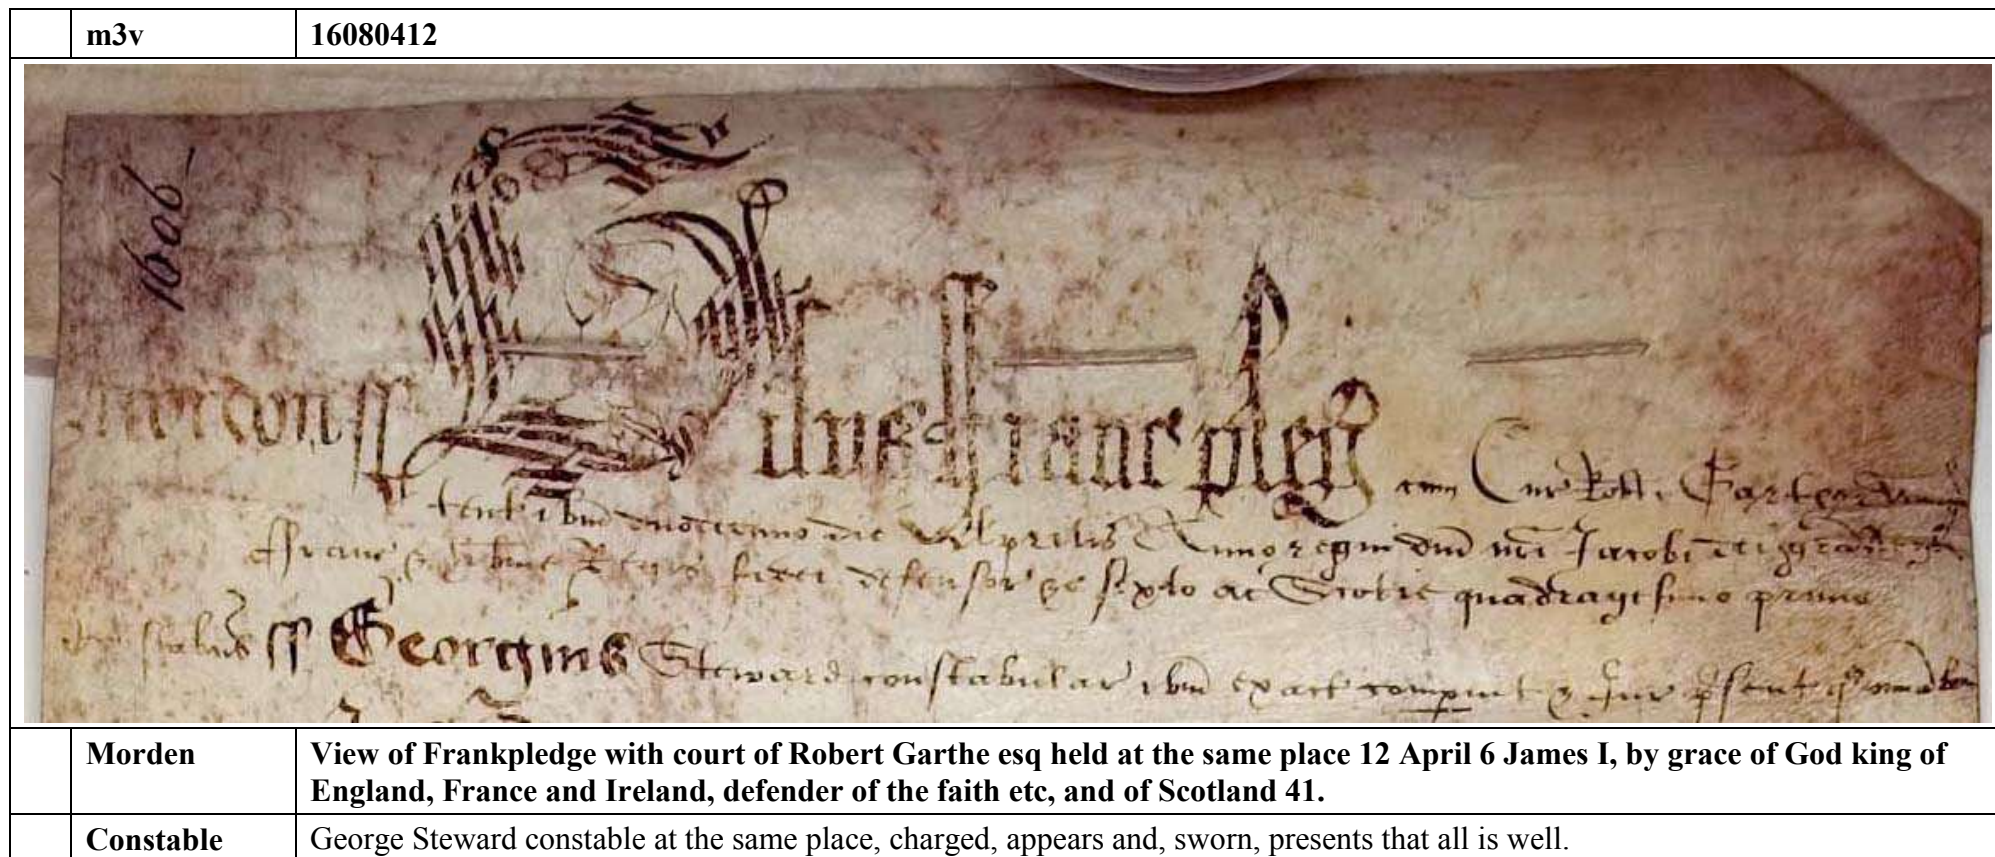 m3v 16080412
1606
mordon ss
Visus Franc pleg cum Cur Robti Garthe Armig
tent ibm duodecimo die Aprilis Anno regni dni nri Jacobi dei gra
Franc & Hibnie Regis fidei defensor &c sexto ac Scotie quadragesimo primo
ss Georgius Steward constabular ibm exact compuit & jur psent qd omia bene
Morden View of Frankpledge with court of Robert Garthe esq held at the same place 12 April 6 James I, by grace of God king of
England, France and Ireland, defender of the faith etc, and of Scotland 41.
Constable George Steward constable at the same place, charged, appears and, sworn, presents that all is well.